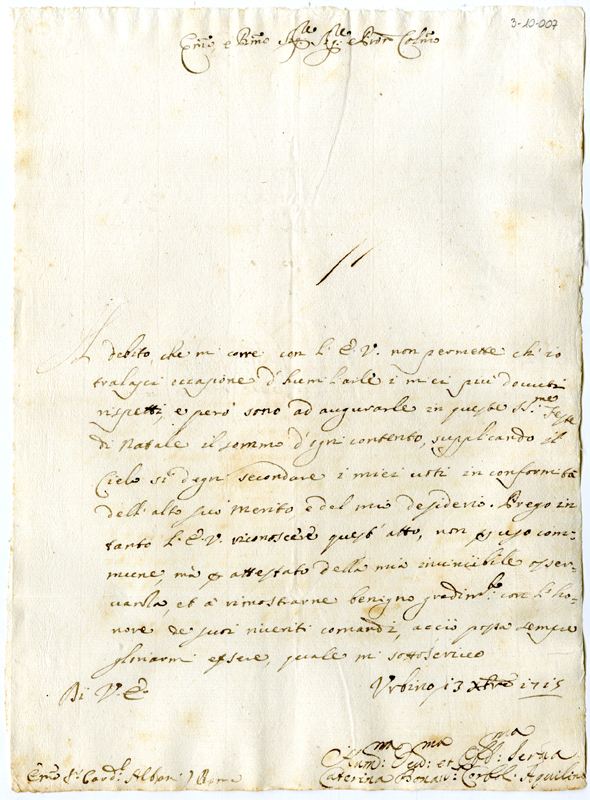 3-10-007
Em̃o e Rm̃o Sig.re Sig.re e Pron Colm̃o
Il debito, che mi corre con l'E.V. non permette ch'io
tralasci occasione d'humiliarle i miei più dovuti
rispetti, e però sono ad augurarle in queste S.me Feste
di Natale il sommo d'ogni contento, supplicando il
Cielo si degni secondare i miei voti in conformità
dell'alto suo merito e del mio desiderio. Prego in=
tanto l'E.V. riconoscere quest'atto, non per uso com=
mune, mà per attestato della mia invincibile osser=
vanza, et à rimostrarne benigno gradim.to con l'ho=
nore de suoi riveriti comandi, acciò possa sempre
gloriarmi essere, quale mi sottoscrivo
Di V.E. Urbino 13 Xbre 1715
Hum.ma Dev.ma et Obl.ma Serva
Em̃o S.r Card.l Albani) Roma Caterina Bonav: Aquilini